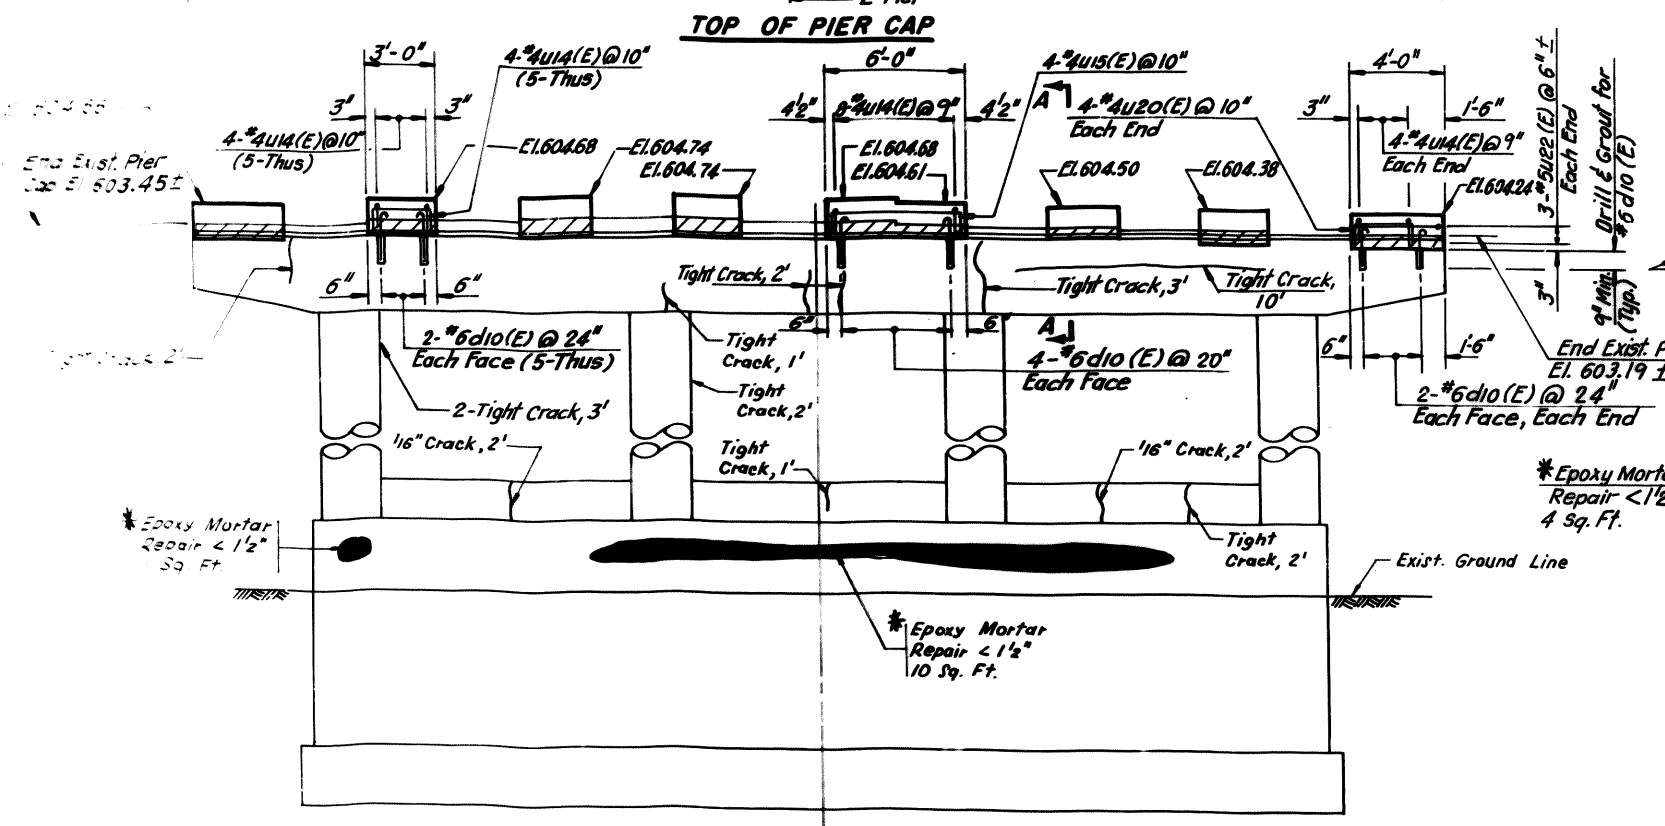 TOP OF PIER CAP
3'-0"
4-#4u14(E)@10"
(5-Thus)
6'-0"
4-#4u15(E)@10"
4'-0"
3"
3"
4-#4u14(E)@10"
(5-Thus)
4½"
8-#4u14(E)@9"
4½"
A
4-#4u20(E)@10"
Each End
3"
1'-6"
4-#4u14(E)@9"
Each End
3-#5u22(E)@6"±
Each End
Drill & Grout for
#6d10(E)
End Exist. Pier
Cap El 603.45±
El.604.68
El.604.74
El.604.74
El.604.68
El.604.61
El.604.50
El.604.38
El.604.24
6"
6"
Tight Crack, 2'
Tight Crack, 3'
Tight Crack,
10'
3"
9" Min.
(Typ.)
2-#6d10(E)@24"
Each Face (5-Thus)
Tight
Crack, 1'
6"
6"
A
4-#6d10(E)@20"
Each Face
6"
1'-6"
End Exist.
El. 603.19 ±
2-#6d10(E)@24"
Each Face, Each End
Crack, 2'
2-Tight Crack, 3'
Tight
Crack, 2'
1/16" Crack, 2'
Tight
Crack, 1'
1/16" Crack, 2'
*Epoxy
Repair <
4 Sq. Ft.
*Epoxy Mortar
Repair < 1½"
Sq. Ft.
Tight
Crack, 2'
Exist. Ground Line
*Epoxy Mortar
Repair < 1½"
10 Sq. Ft.